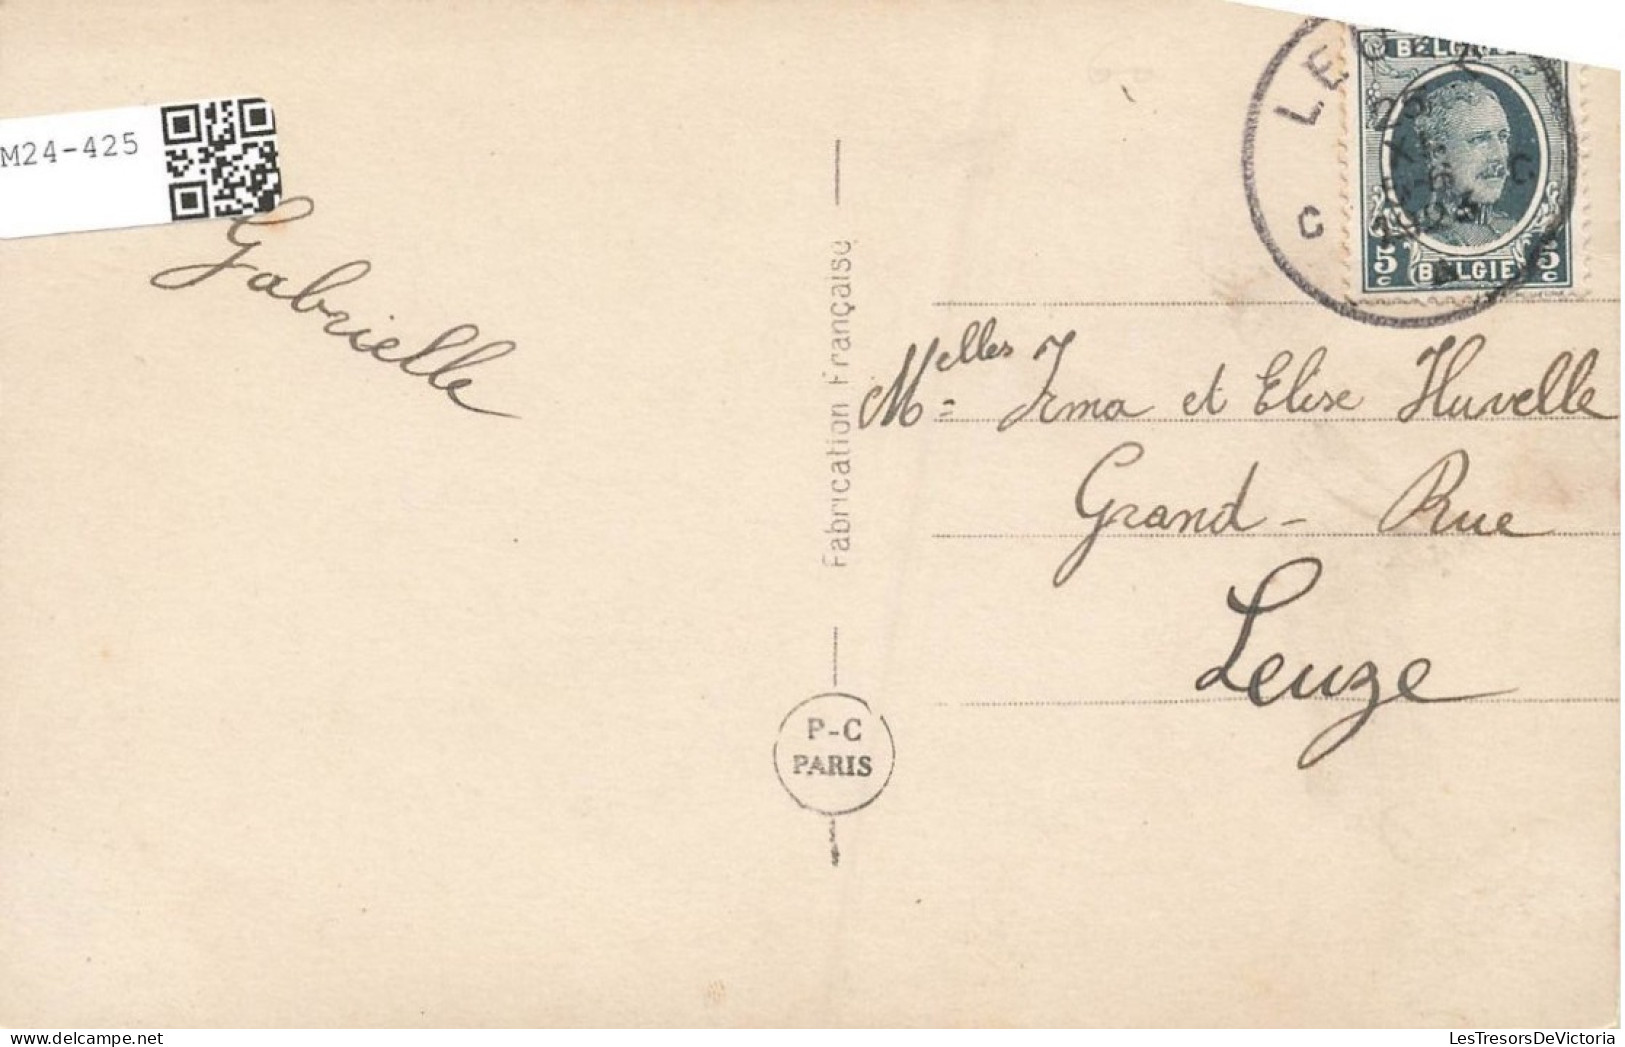 M24-425
Gabrielle
Fabrication Française
P-C
PARIS
BELGI
5c BELGIE 5c
LEUZE
C C
Melles Irma et Elise Huvelle
Grand-Rue
Leuze
LesTresorsDeVictoria